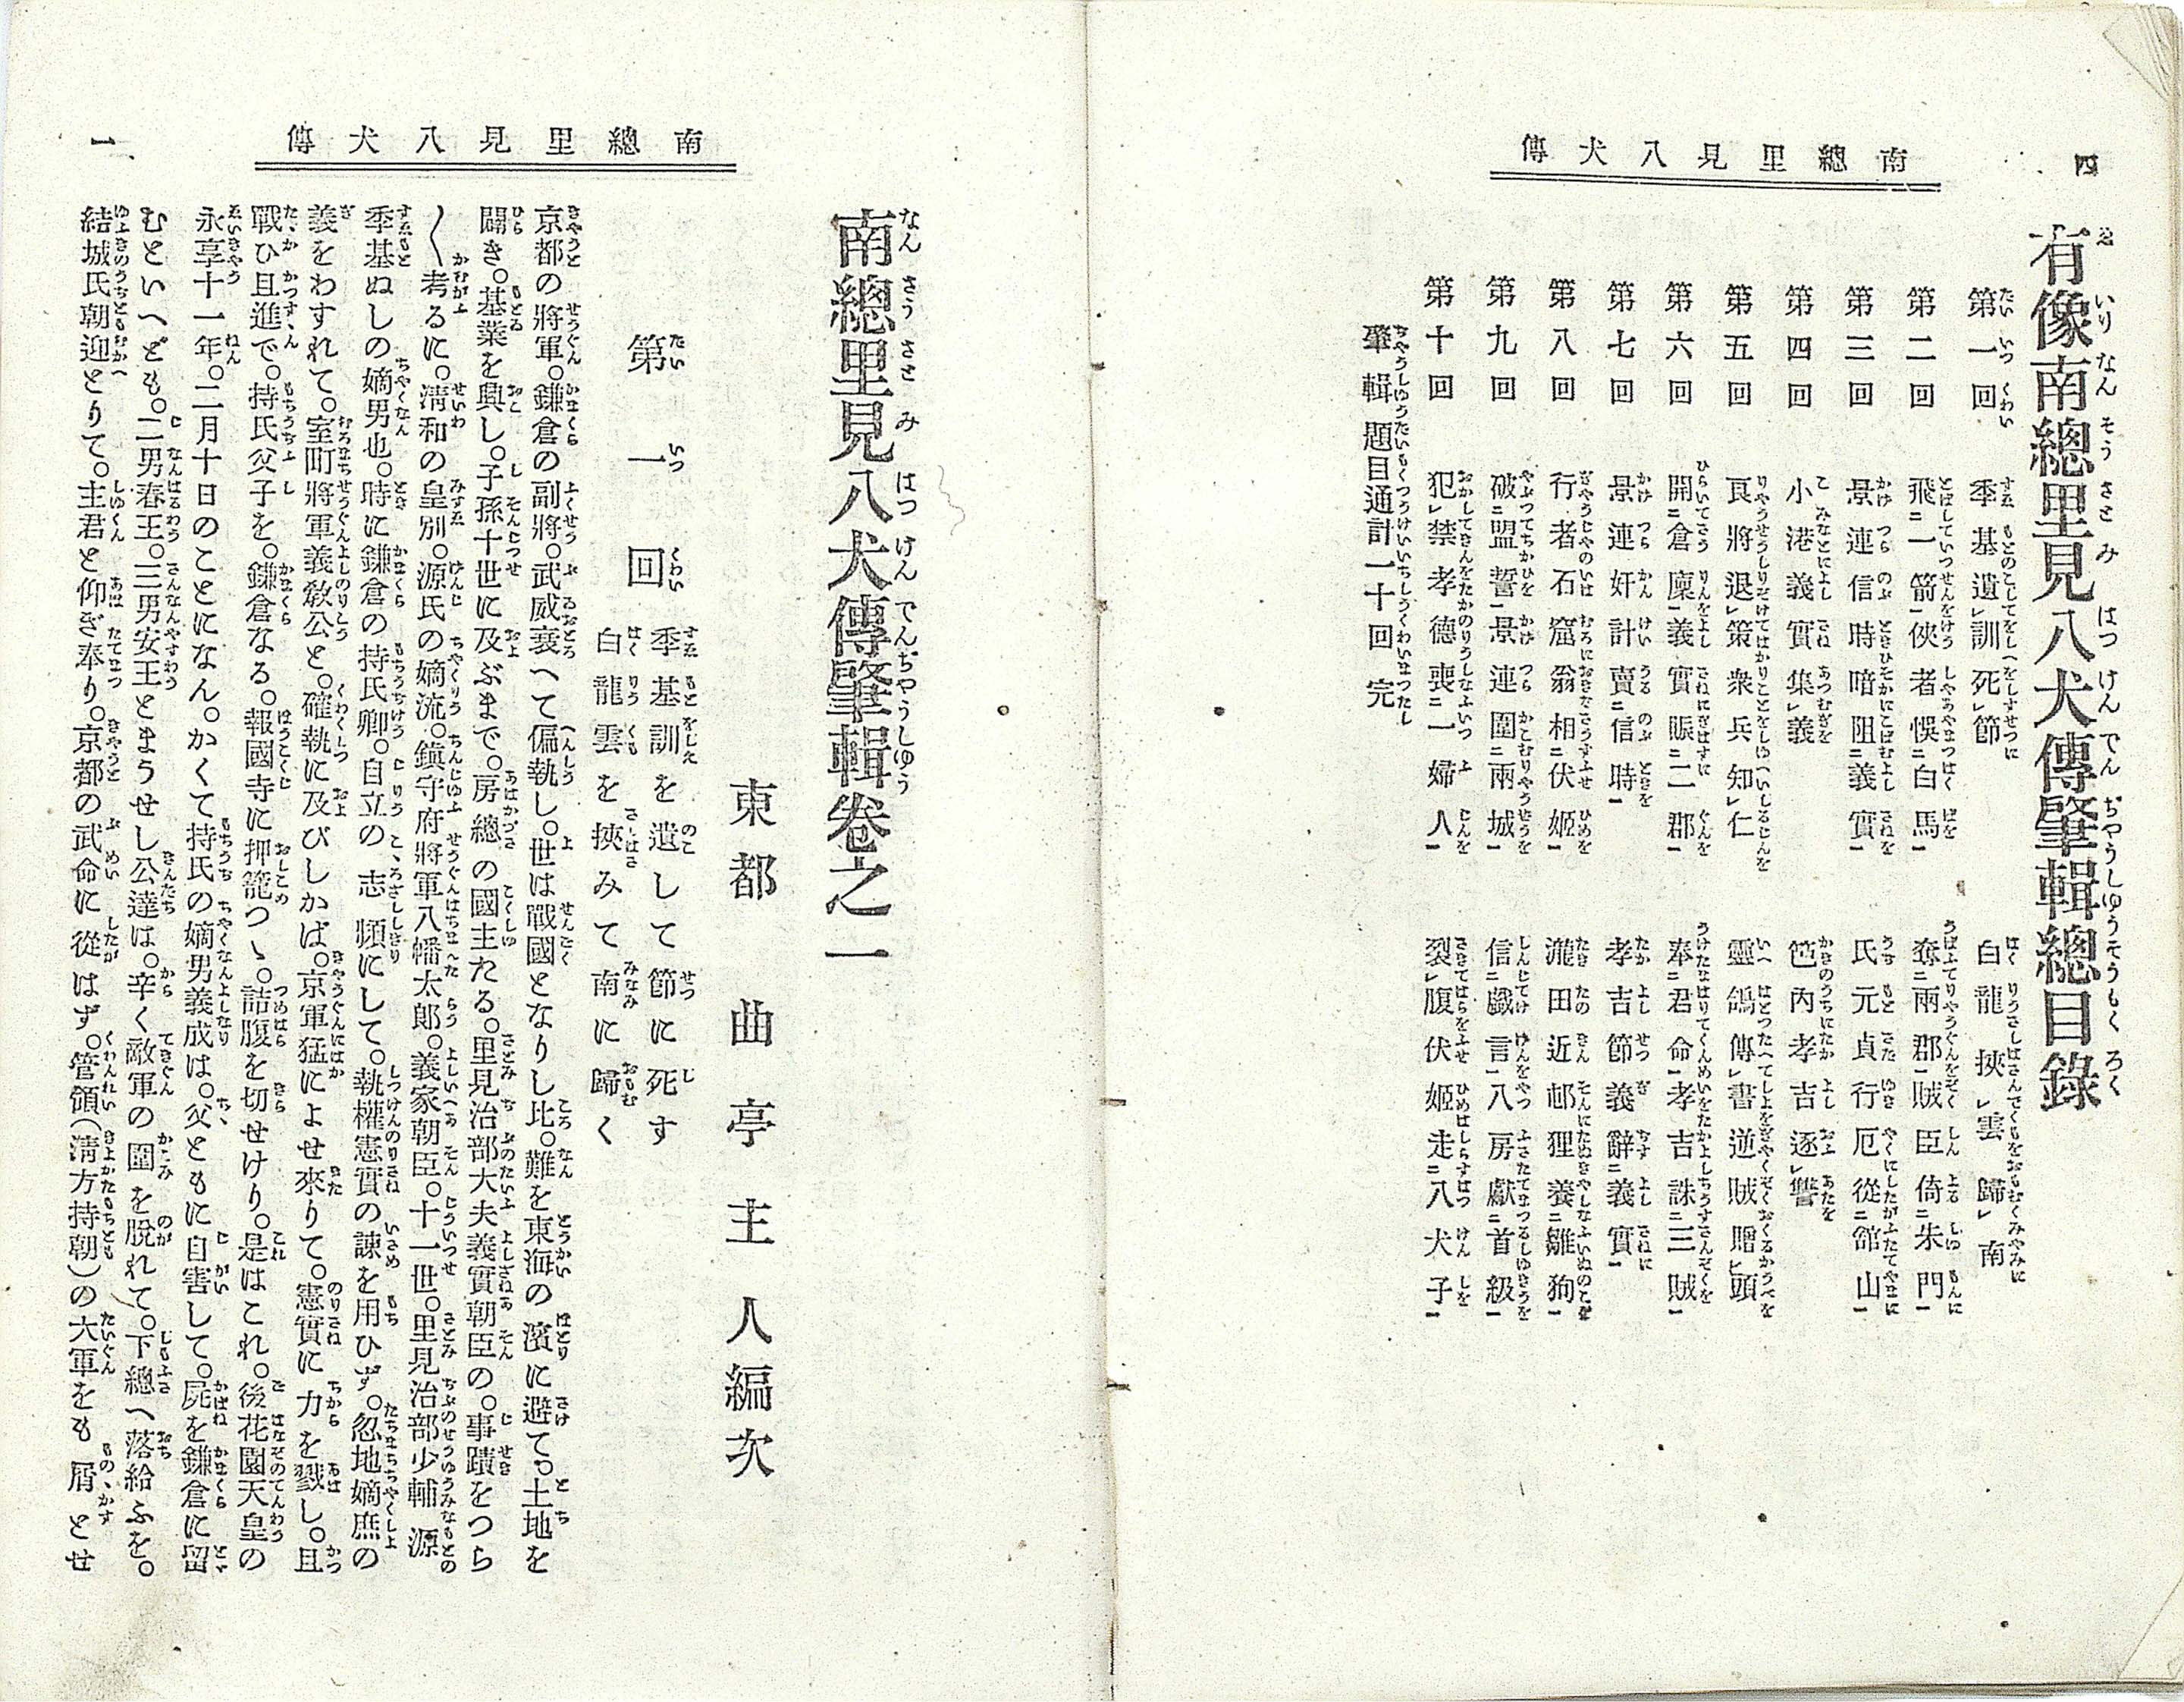 四
南總里見八犬傳
有像南總里見八犬傳肇輯總目錄
第一回 季基遺レ訓死レ節 白龍挾レ雲歸レ南
第二回 飛二一箭一俠者悞二白馬一 奪二兩郡一賊臣倚二朱門一
第三回 景連信時暗阻二義實一 氏元貞行厄從二舘山一
第四回 小港義實集レ義 笆內孝吉逐レ讐
第五回 良將退レ策衆兵知レ仁 靈鴿傳レ書逆賊贈レ頭
第六回 開二倉廩一義實賑二二郡一 奉二君命一孝吉誅二三賊一
第七回 景連奸計賣二信時一 孝吉節義辭二義實一
第八回 行者石窟翁相二伏姬一 瀧田近邨狸養二雛狗一
第九回 破二盟誓一景連圍二兩城一 信二戲言一八房獻二首級一
第十回 犯レ禁孝德喪二一婦人一 裂レ腹伏姬走二八犬子一
肇輯題目通計一十回完
南總里見八犬傳
一
南總里見八犬傳肇輯卷之一
東都 曲亭主人編次
第一回 季基訓を遺して節に死す
白龍雲を挾みて南に歸く
京都の將軍。鎌倉の副將。武威衰へて偏執し。世は戰國となりし比。難を東海の濱に避て。土地を
闢き。基業を興し。子孫十世に及ぶまで。房總の國主たる。里見治部大夫義實朝臣の。事蹟をつら
〱考るに。淸和の皇別。源氏の嫡流。鎭守府將軍八幡太郎。義家朝臣。十一世。里見治部少輔源
季基ぬしの嫡男也。時に鎌倉の持氏卿。自立の志頻にして。執權憲實の諫を用ひず。忽地嫡庶の
義をわすれて。室町將軍義敎公と。確執に及びしかば。京軍猛によせ來りて。憲實に力を戮し。且
戰ひ且進で。持氏父子を。鎌倉なる。報國寺に押籠つゝ。詰腹を切せけり。是はこれ。後花園天皇の
永享十一年。二月十日のことになん。かくて持氏の嫡男義成は。父ともに自害して。屍を鎌倉に留
むといへども。二男春王。三男安王とまうせし公達は。辛く敵軍の圍を脫れて。下總へ落給ふを。
結城氏朝迎とりて。主君と仰ぎ奉り。京都の武命に從はず。管領（淸方持朝）の大軍をも屑とせ